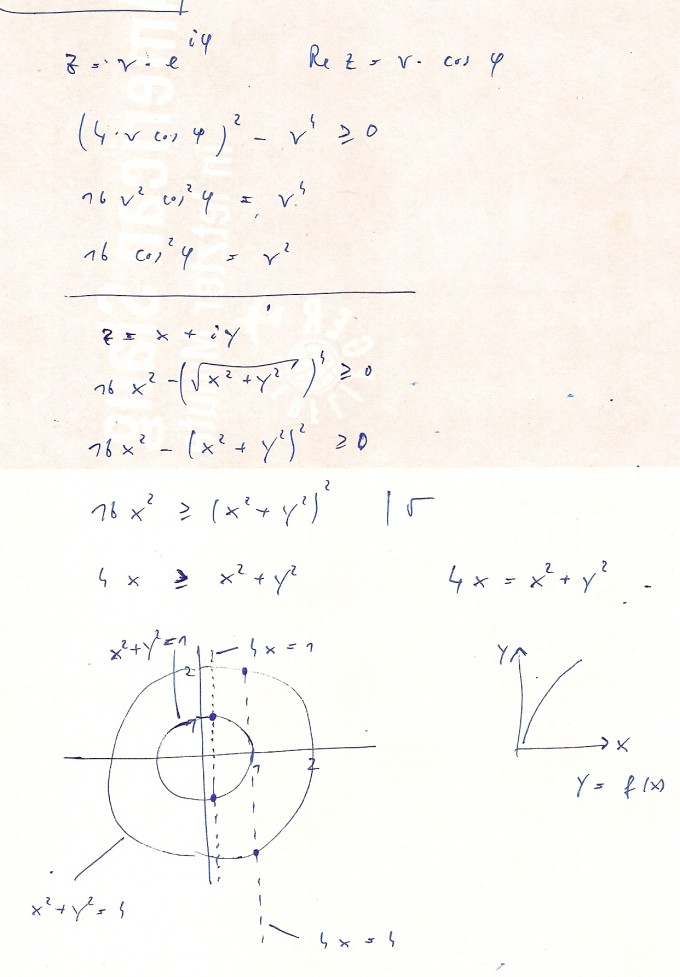 z = r · e^{iφ} Re z = r · cos φ
(4 · r cos φ)² − r⁴ ≥ 0
16 r² cos² φ = r⁴
16 cos² φ = r²
z = x + iy
16 x² − (√(x² + y²))⁴ ≥ 0
16 x² − (x² + y²)² ≥ 0
16 x² ≥ (x² + y²)² | √
4 x ≥ x² + y² 4 x = x² + y²
x² + y² = 1 4 x = 1
2
1
1 2
Y
X
Y = f(x)
x² + y² = 4
4 x = 4